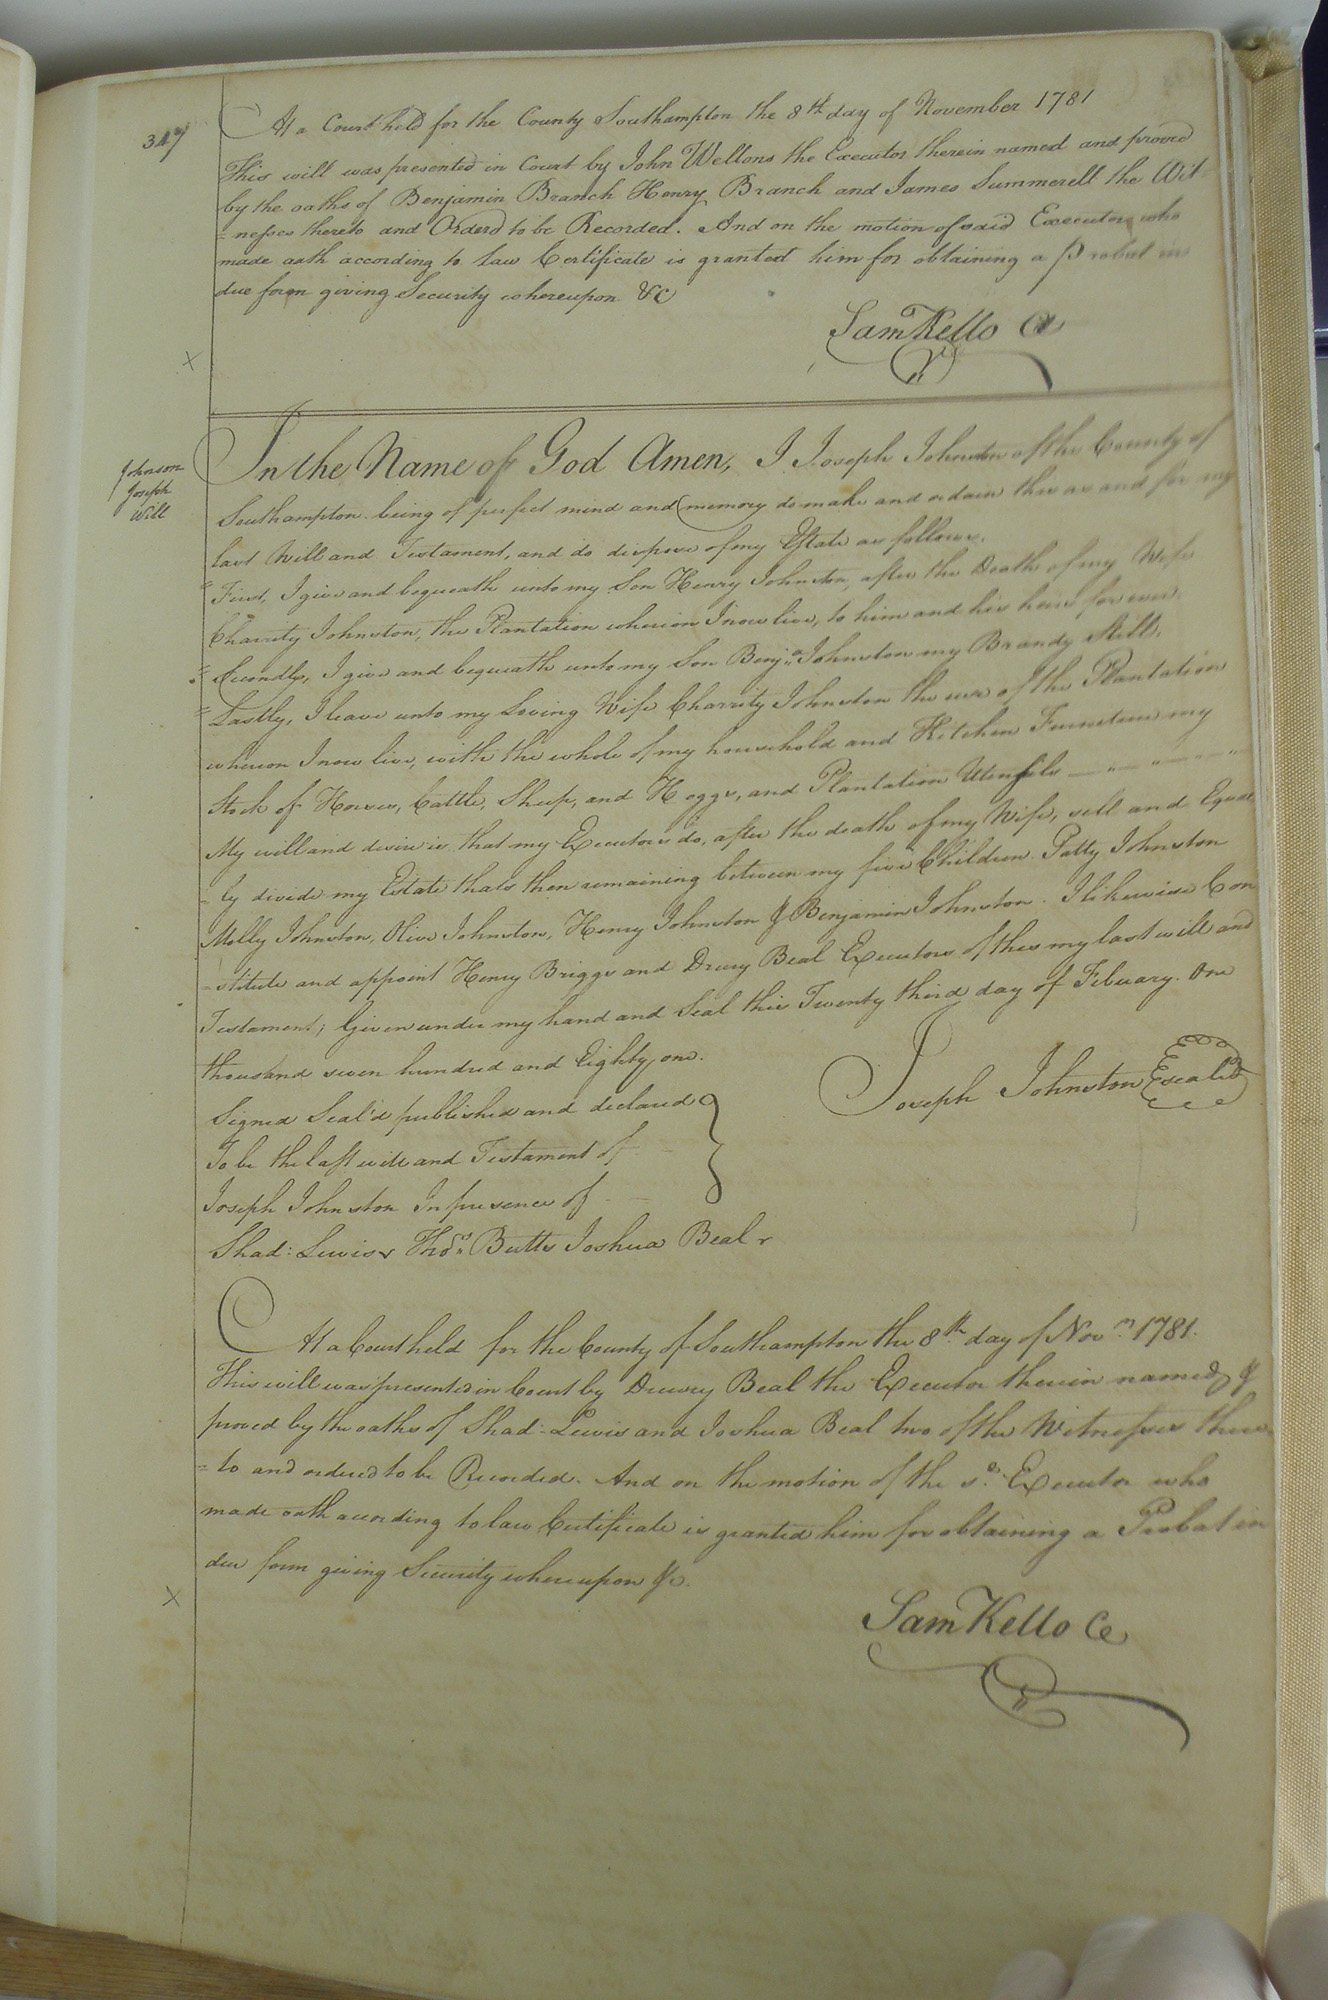 347
At a Court held for the County Southampton the 8th day of November 1781
This will was presented in Court by John Wellons the Executor therein named and proved
by the oaths of Benjamin Branch Henry Branch and James Summerell the Wit
=nesses thereto and Orderd to be Recorded. And on the motion of said Executor who
made oath according to Law Certificate is granted him for obtaining a Probat in
due form giving Security whereupon &c
Sam Kello Ce
Johnson
Joseph
Will
In the Name of God Amen, I Joseph Johnston of the County of
Southampton being of perfect mind and memory do make and ordain this as and for my
last Will and Testament, and do dispose of my Estate as follows.
First, I give and bequeath unto my Son Henry Johnston, after the Death of my Wife
Charrity Johnston, the Plantation whereon I now live, to him and his heirs for ever.
Secondly, I give and bequeath unto my Son Benja. Johnston my Brandy Still.
Lastly, I leave unto my Loving Wife Charrity Johnston the use of the Plantation
whereon I now live, with the whole of my household and Kitchen Furniture my
Stock of Horses, Cattle, Sheep, and Hoggs, and Plantation Utensels
My will and desire is that my Executors do, after the death of my Wife, sell and Equal
=ly divide my Estate thats then remaining between my five Children Patty Johnston
Molly Johnston, Olive Johnston, Henry Johnston & Benjamin Johnston. I likewise Con
=stitute and appoint Henry Briggs and Drury Beal Executors of this my last will and
Testament; Given under my hand and Seal this Twenty third day of Febuary. One
thousand seven hundred and Eighty one.
Joseph Johnston
Signed Seal'd published and declared
To be the last will and Testament of
Joseph Johnston In presence of
Shad: Lewis Thos. Butts Joshua Beal
At a Court held for the County of Southampton the 8th day of Novm 1781.
This will was presented in Court by Drewry Beal the Executor therein named &
proved by the oaths of Shad: Lewis and Joshua Beal two of the Witnesses there
=to and ordered to be Recorded. And on the motion of the sd. Executor who
made oath according to law Certificate is granted him for obtaining a Probat in
due form giving Security whereupon &c.
Sam Kello Ce